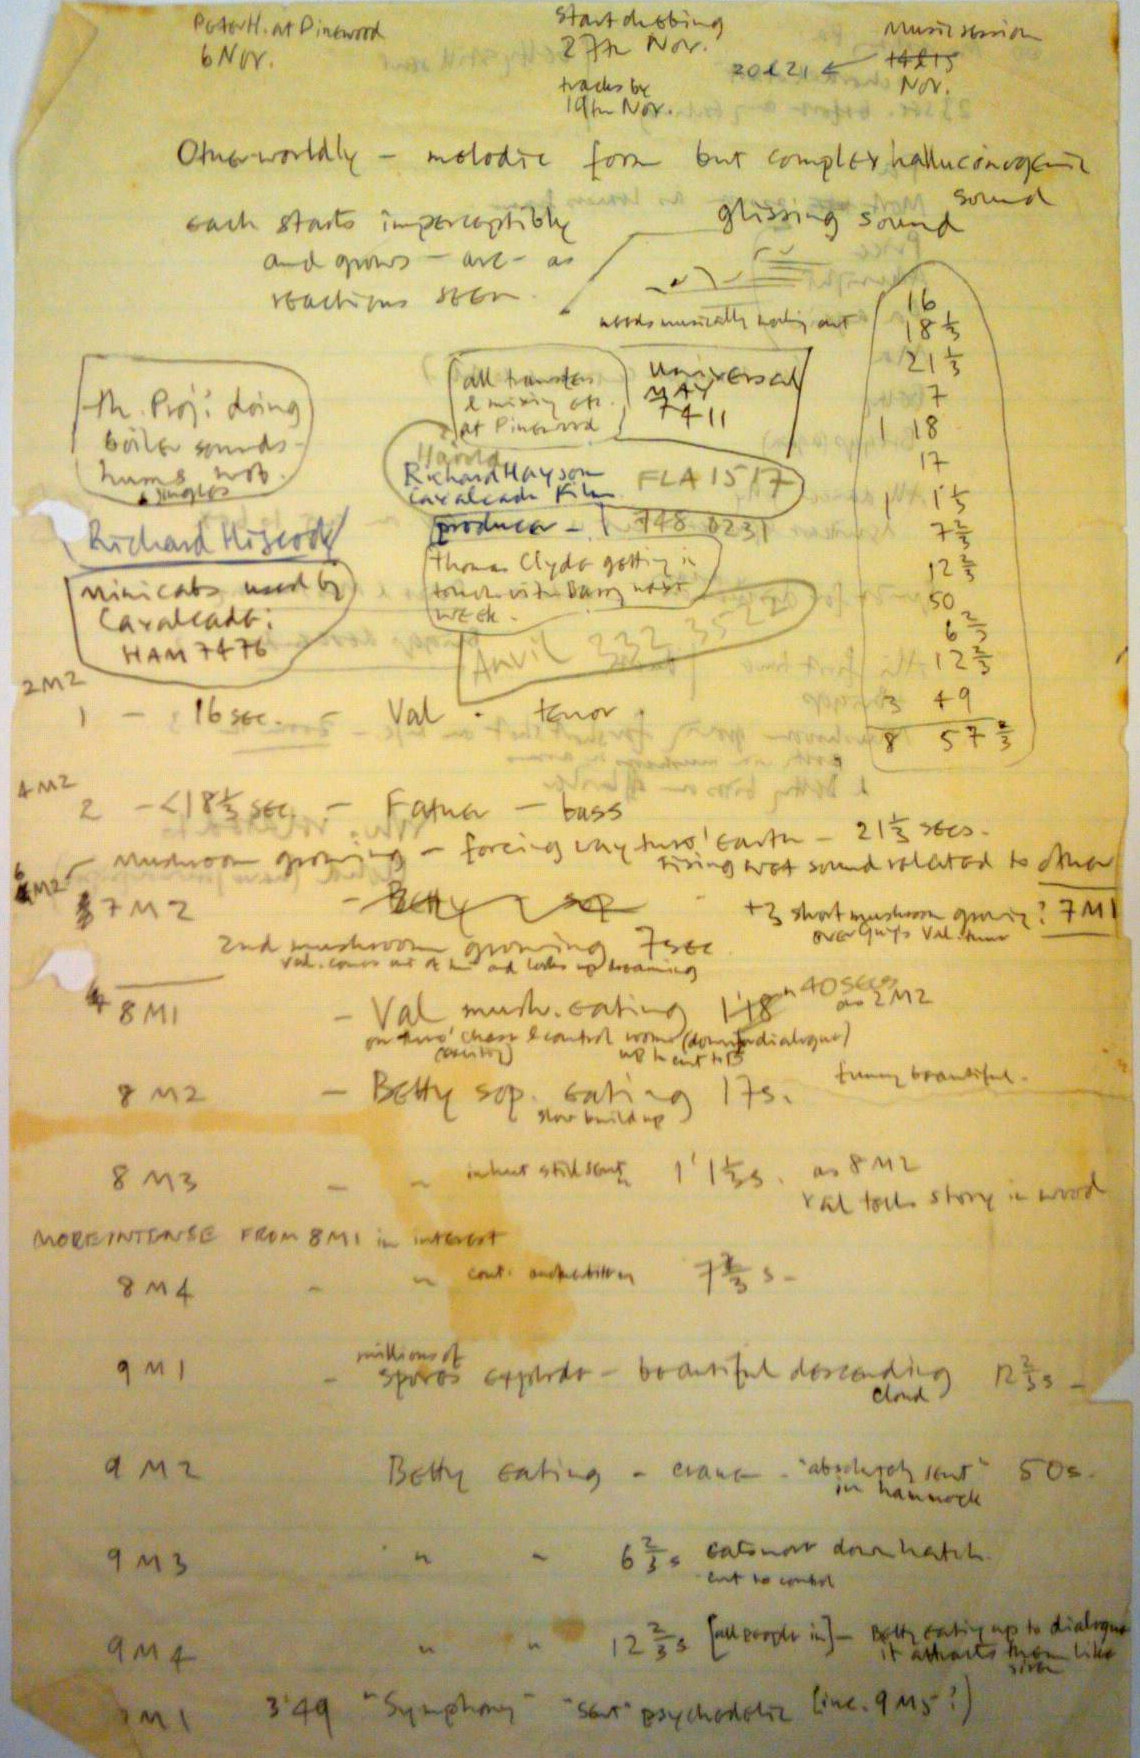 Peter H. at Pinewood
6 Nov.
Start dubbing
27th Nov.
tracks by
19th Nov.
Music session
14 & 15
Nov.
20 & 21
Otherworldly - melodic form but complex hallucinogenic
sound
each starts imperceptibly
and grows - arc - as
reactions seen.
glissing sound
needs musically working out
16
18 1/3
21 1/3
7
1 18
17
1 1 1/3
7 2/3
12 2/3
50
6 2/3
12 2/3
3 49
8 57 2/3
Th. Proj: doing
boiler sounds
hums
& jingles
all transfers
& mixing etc.
at Pinewood
Universal
MAY
7411
Harold
Richard Hayson
Cavalcade Film
FLA 1517
producer - 748 0231
Richard Hiscock
Thomas Clyde getting in
touch with Barry next
week.
Minicabs used by
Cavalcade:
HAM 7476
Anvil 332 3522
2M2
1 - 16 sec. - Val . tenor .
4M2
2 - <18 1/3 sec. - Father - bass
Mushroom growing - forcing way thro' earth - 21 1/3 secs.
rising wet sound related to other
6M2
7M2 - Betty sop
+3 short mushroom growing? 7M1
over Val. tenor
2nd mushroom growing 7sec
Val. comes out of and looks up dreaming
4 8M1 - Val mush. eating 1'18" 40 secs
as 2M2
on thro' chase & control room (down for dialogue)
8M2 - Betty sop. eating 17s.
slow build up
funny beautiful.
8M3 - " in hut still sent 1' 1 1/3 s. as 8M2
Val tells story in wood
MORE INTENSE FROM 8M1 in interest
8M4 - " cont. 7 2/3 s -
9M1 - millions of
spores explode - beautiful descending 12 2/3 s -
cloud
9M2 Betty eating - - "absolutely sent" 50s.
in hammock
9M3 " " 6 2/3 s eats more down hatch.
cut to control
9M4 " " 12 2/3 s [all people in] - Betty eating up to dialogue
it attracts them like
siren
M1 3'49 "Symphony" "sent" psychedelic (inc. 9M5?)